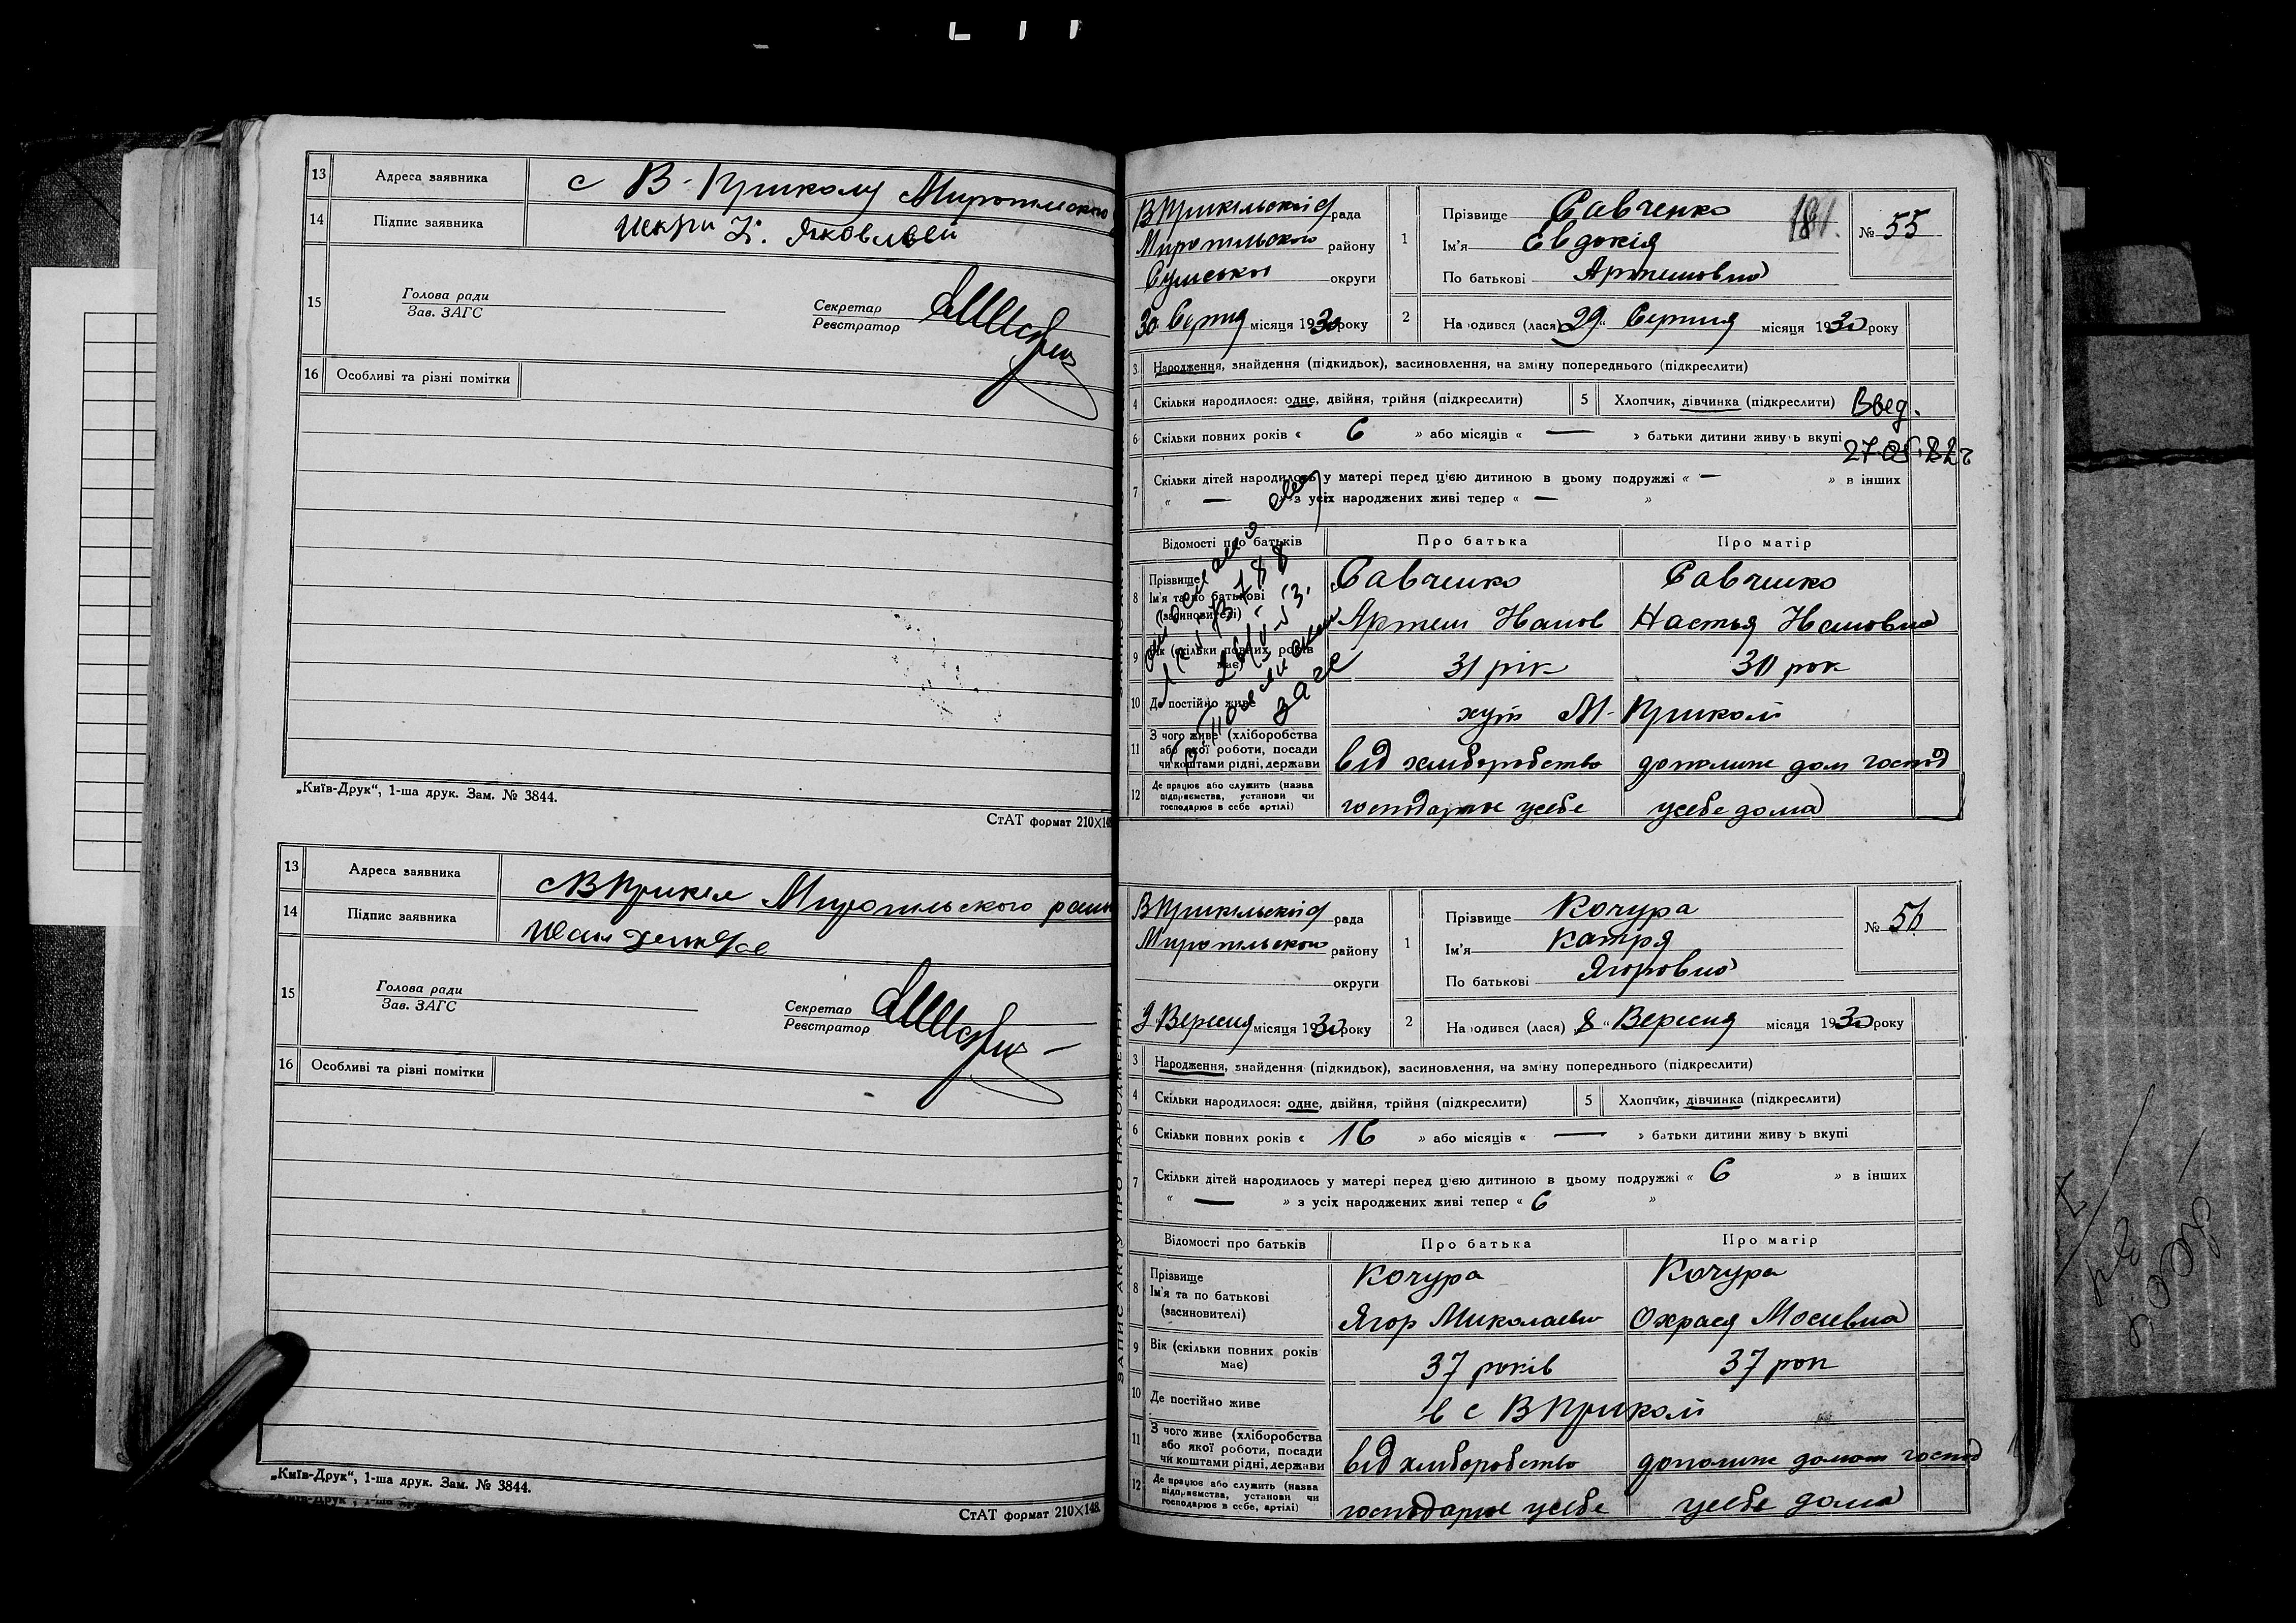 13 Адреса заявника с В-Приколу Миропільского
14 Підпис заявника
15 Голова ради
Зав. ЗАГС
Секретар
Реєстратор
16 Особливі та різні помітки
„Київ-Друк“, 1-ша друк. Зам. № 3844.
СтАТ формат 210×148
13 Адреса заявника с В Прикол Миропільского
14 Підпис заявника
15 Голова ради
Зав. ЗАГС
Секретар
Реєстратор
16 Особливі та різні помітки
„Київ-Друк“, 1-ша друк. Зам. № 3844.
СтАТ формат 210×148.
ЗАПИС АКТУ ПРО НАРОДЖЕННЯ
В Прикільской рада
Миропільского району
Сумської округи
30 Серпня місяця 1930 року
1 Прізвище Савченко
Ім'я Евдокія
По батькові Артемовна
181.
№ 55
2 Народився (лася) „29“ Серпня місяця 1930 року
3 Народження, знайдення (підкидьок), засиновлення, на зміну попереднього (підкреслити)
4 Скільки народилося: одне, двійня, трійня (підкреслити) 5 Хлопчик, дівчинка (підкреслити)
6 Скільки повних років « 6 » або місяців « — » батьки дитини живуть вкупі
7 Скільки дітей народилось у матері перед цією дитиною в цьому подружжі « — » в інших
« — » з усіх народжених живі тепер « — »
Відомості про батьків Про батька Про матір
8 Прізвище Савченко Савченко
Ім'я та по батькові
(засиновителі) Артем Настья
9 Вік (скільки повних років має) 31 рік 30 рок
10 Де постійно живе хут М-Прикол
11 З чого живе (хліборобства або якої роботи, посади чи коштами рідні, держави від хліборобство дом господ
12 Де працює або служить (назва підприємства, установи чи господарює в себе артілі) господарює усебе усебе дома
В Прикільской рада
Миропільского району
округи
9 „Вересня місяця 1930 року
1 Прізвище Кочура
Ім'я Катря
По батькові Ягоровна
№ 56
2 Народився (лася) 8 “ Вересня місяця 1930 року
3 Народження, знайдення (підкидьок), засиновлення, на зміну попереднього (підкреслити)
4 Скільки народилося: одне, двійня, трійня (підкреслити) 5 Хлопчик, дівчинка (підкреслити)
6 Скільки повних років « 16 » або місяців « — » батьки дитини живуть вкупі
7 Скільки дітей народилось у матері перед цією дитиною в цьому подружжі « 6 » в інших
« — » з усіх народжених живі тепер « 6 »
Відомості про батьків Про батька Про матір
8 Прізвище Кочура Кочура
Ім'я та по батькові
(засиновителі) Ягор Миколаевич
9 Вік (скільки повних років має) 37 років 37 рок
10 Де постійно живе в с В Прикол
11 З чого живе (хліборобства або якої роботи, посади чи коштами рідні, держави від хліборобство господ
12 Де працює або служить (назва підприємства, установи чи господарює в себе, артілі) господарює усебе усебе дома